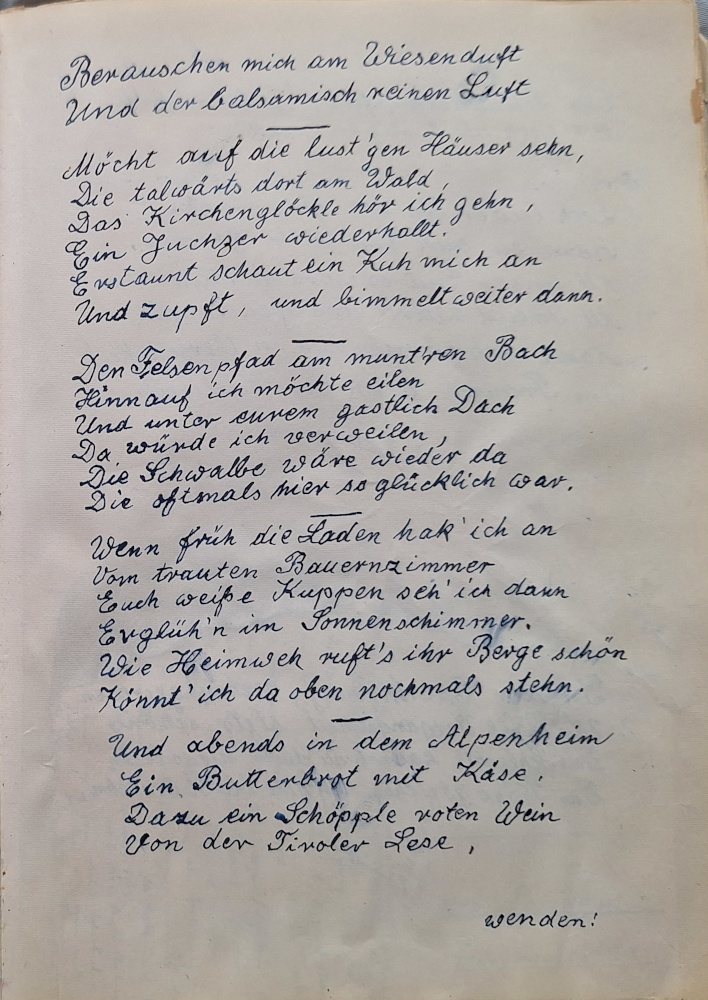 Berauschen mich am Wiesenduft
Und der balsamisch reinen Luft
Möcht auf die lust'gen Häuser sehn,
Die talwärts dort am Wald,
Das Kirchenglöckle hör ich gehn,
Ein Juchzer wiederhallt.
Erstaunt schaut ein Kuh mich an
Und zupft, und bimmelt weiter dann.
Den Felsenpfad am munt'ren Bach
Hinnauf ich möchte eilen
Und unter eurem gastlich Dach
Da würde ich verweilen,
Die Schwalbe wäre wieder da
Die oftmals hier so glücklich war.
Wenn früh die Laden hak' ich an
Vom trauten Bauernzimmer
Euch weiße Kuppen seh' ich dann
Erglüh'n im Sonnenschimmer.
Wie Heimweh ruft's ihr Berge schön
Könnt' ich da oben nochmals stehn.
Und abends in dem Alpenheim
Ein Butterbrot mit Käse.
Dazu ein Schöpple roten Wein
Von der Tiroler Lese,
wenden!